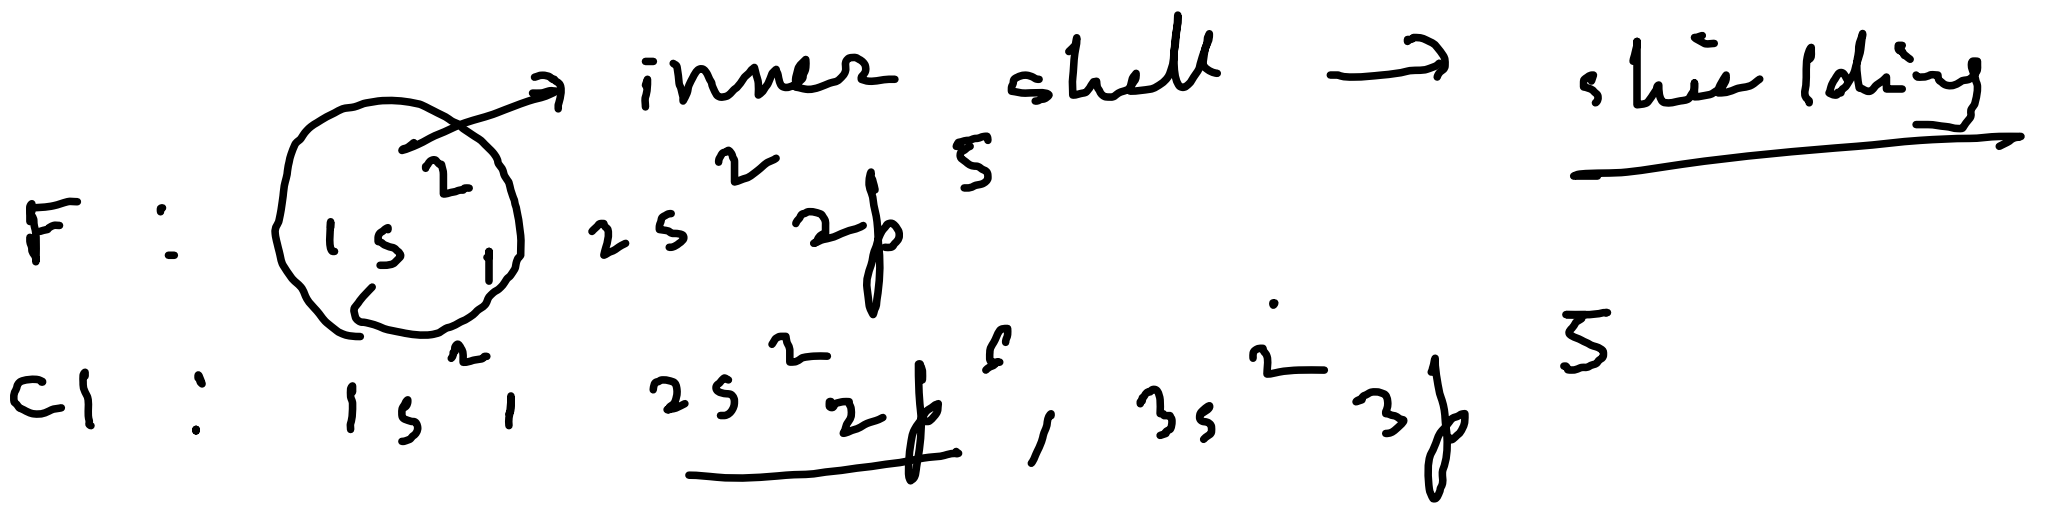 inner shell → shielding
F : 1s² , 2s² 2p⁵
Cl : 1s² , 2s² 2p⁶ , 3s² 3p⁵